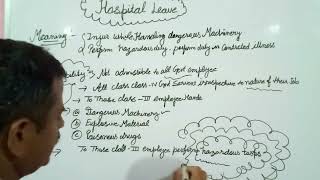 Hospital Leave
Meaning - Injur While Handling dangerous Machinery
Perform hazardous duty, perform duty in Contracted illness
bility is Not admissible to all Govt employee
→ All class class-IV Govt Servant irrespective to nature of their Job
→ To Those Class-III employee Hande
(a) Dangerous Machinery
(b) Explosive Material
(c) Poisonous drugs
To Those Class-III employee perform hazardous tasks